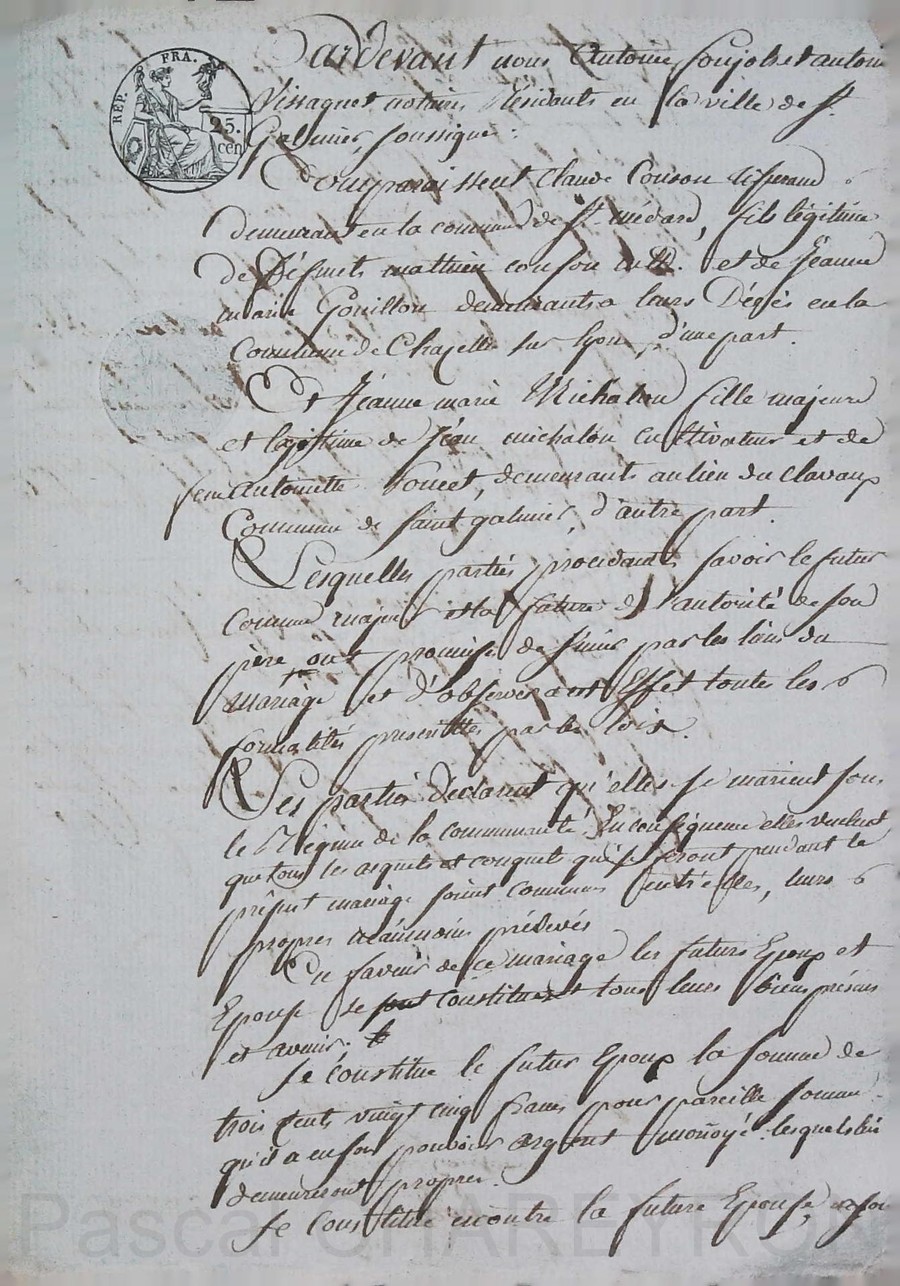 RÉP. FRA.
25.
cen
Pardevant nous Antoine Soujol et antoine
Vissaguet notaires Résidants en la ville de St
Galmier, soussigné :
Comparaissent Claude Couson
demeurant en la commune de St médard, fils légitime
de Défunts mathieu couson et de Jeanne
marie Gouillon demeurants a leurs Décès en la
Commune de Chazelle sur Lyon, d'une part.
Et Jeanne marie Michalon fille majeure
et légitime de Jean michalon cultivateur et de
feue antoinette Poncet, demeurants au lieu du clavaux
Commune de saint galmier, d'autre part.
Lesquelles parties procédants savoir le futur
comme majeur et la future de l'autorité de son
père ont promis de s'unir par les liens du
mariage et d'observer a cet Effet toutes les
formalités prescrittes par les loix.
Les partie déclarent qu'elles se marient sous
le Régime de la communauté. En conséquence elles veulent
que tous les acquets et conquets qu'ils feront pendant le
présent mariage soient communs entr'elles, leurs
propres néanmoins prélevés
En faveur de ce mariage les futurs Epoux et
Epouse se sont constitués tous leurs biens présens
et avenir.
Se constitue le futur Epoux la somme de
trois cents vingt cinq francs pour pareille somme
qu'il a en son pouvoir argent monoyé. lesquels lui
demeureront propres.
Se Constitue encontre la future Epouse,
Pascal CHAREYRON